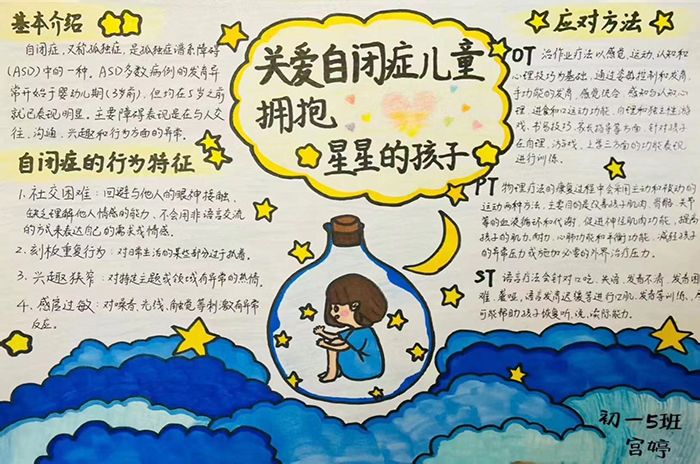 基本介绍
自闭症,又称孤独症,是孤独症谱系障碍
(ASD)中的一种。ASD多数病例的发育异
常开始于婴幼儿期(3岁前),但均在5岁之前
就已表现明显。主要障碍表现是在与人交
往、沟通、兴趣和行为方面的异常。
自闭症的行为特征
1. 社交困难:回避与他人的眼神接触、
缺乏理解他人情感的能力、不会用非语言交流
的方式来表达自己的需求或情感。
2. 刻板重复行为:对日常生活的某些部分过于执着。
3. 兴趣狭窄:对特定主题或领域有异常的热情。
4. 感官过敏:对噪音、光线、触觉等刺激有异常
反应。
关爱自闭症儿童
拥抱
星星的孩子
应对方法
OT 治作业疗法以感觉、运动、认知和
心理技巧为基础,通过姿势控制和发育
手功能的发育、感觉统合、感知与认知心
理、进食和口运动功能、自理和独立性、游
戏、书写技巧、
在自理、游戏、上学三方面的功能表现
进行训练。
PT 物理疗法的康复过程中会采用主动和被动的
运动两种方法,主要目的是改善孩子肌肉、骨骼、关节
等的血液循环和代谢,促进神经肌肉功能,提高
孩子的肌力、耐力、心肺功能和平衡功能,减轻孩子
的异常压力或施加必要的外界治疗压力。
ST 语言疗法会针对口吃、失语、发音不清、发音困
难、聋哑、语言发育迟缓等进行口肌、发音等训练,
可能帮助孩子恢复听、说、读际能力。
初一5班
宫婷